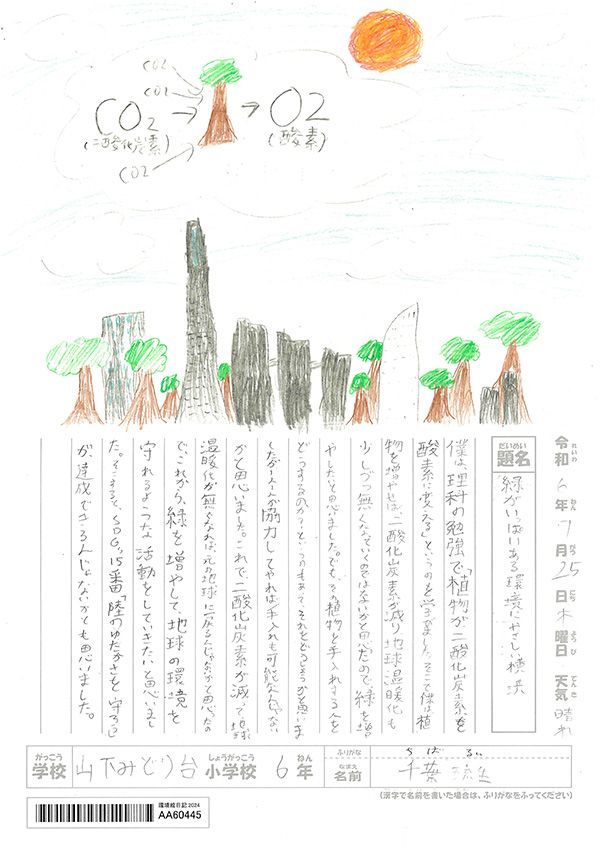 CO2
CO2
CO2
(二酸化炭素)
CO2
O2
(酸素)
令和6年7月25日木曜日 天気 晴れ
れいわ ねん がつ にち ようび てんき
だいめい
題名
緑がいっぱいある環境にやさしい横浜
僕は、理科の勉強で「植物が二酸化炭素を
酸素に変える」というのを学びました。そこで僕は、植
物を増やせば、二酸化炭素が減り地球温暖化も
少しづつ無くなっていくのではないかと思ったので緑を増
やしたいと思いました。でも、その植物を手入れする人を
どうするのか?というのもあってそれをどうしようかと思いま
したが、一人一人が協力してやれば手入れも可能なんじゃない
かと思いました。これで二酸化炭素が減って、地球
温暖化が無くなれば、元の地球に戻るんじゃないかと思ったの
で、これから、緑を増やして、地球の環境を
守れるような活動をしていきたいと思いまし
た。そこすると、SDGs15番「陸のゆたかさを守ろう」
が、達成できるんじゃないかとも思いました。
がっこう
学校
山下みどり台
しょうがっこう
小学校
6
ねん
年
ふりがな
ちば
なまえ
名前
千葉
(漢字で名前を書いた場合は、ふりがなをふってください)
環境絵日記2024
AA60445